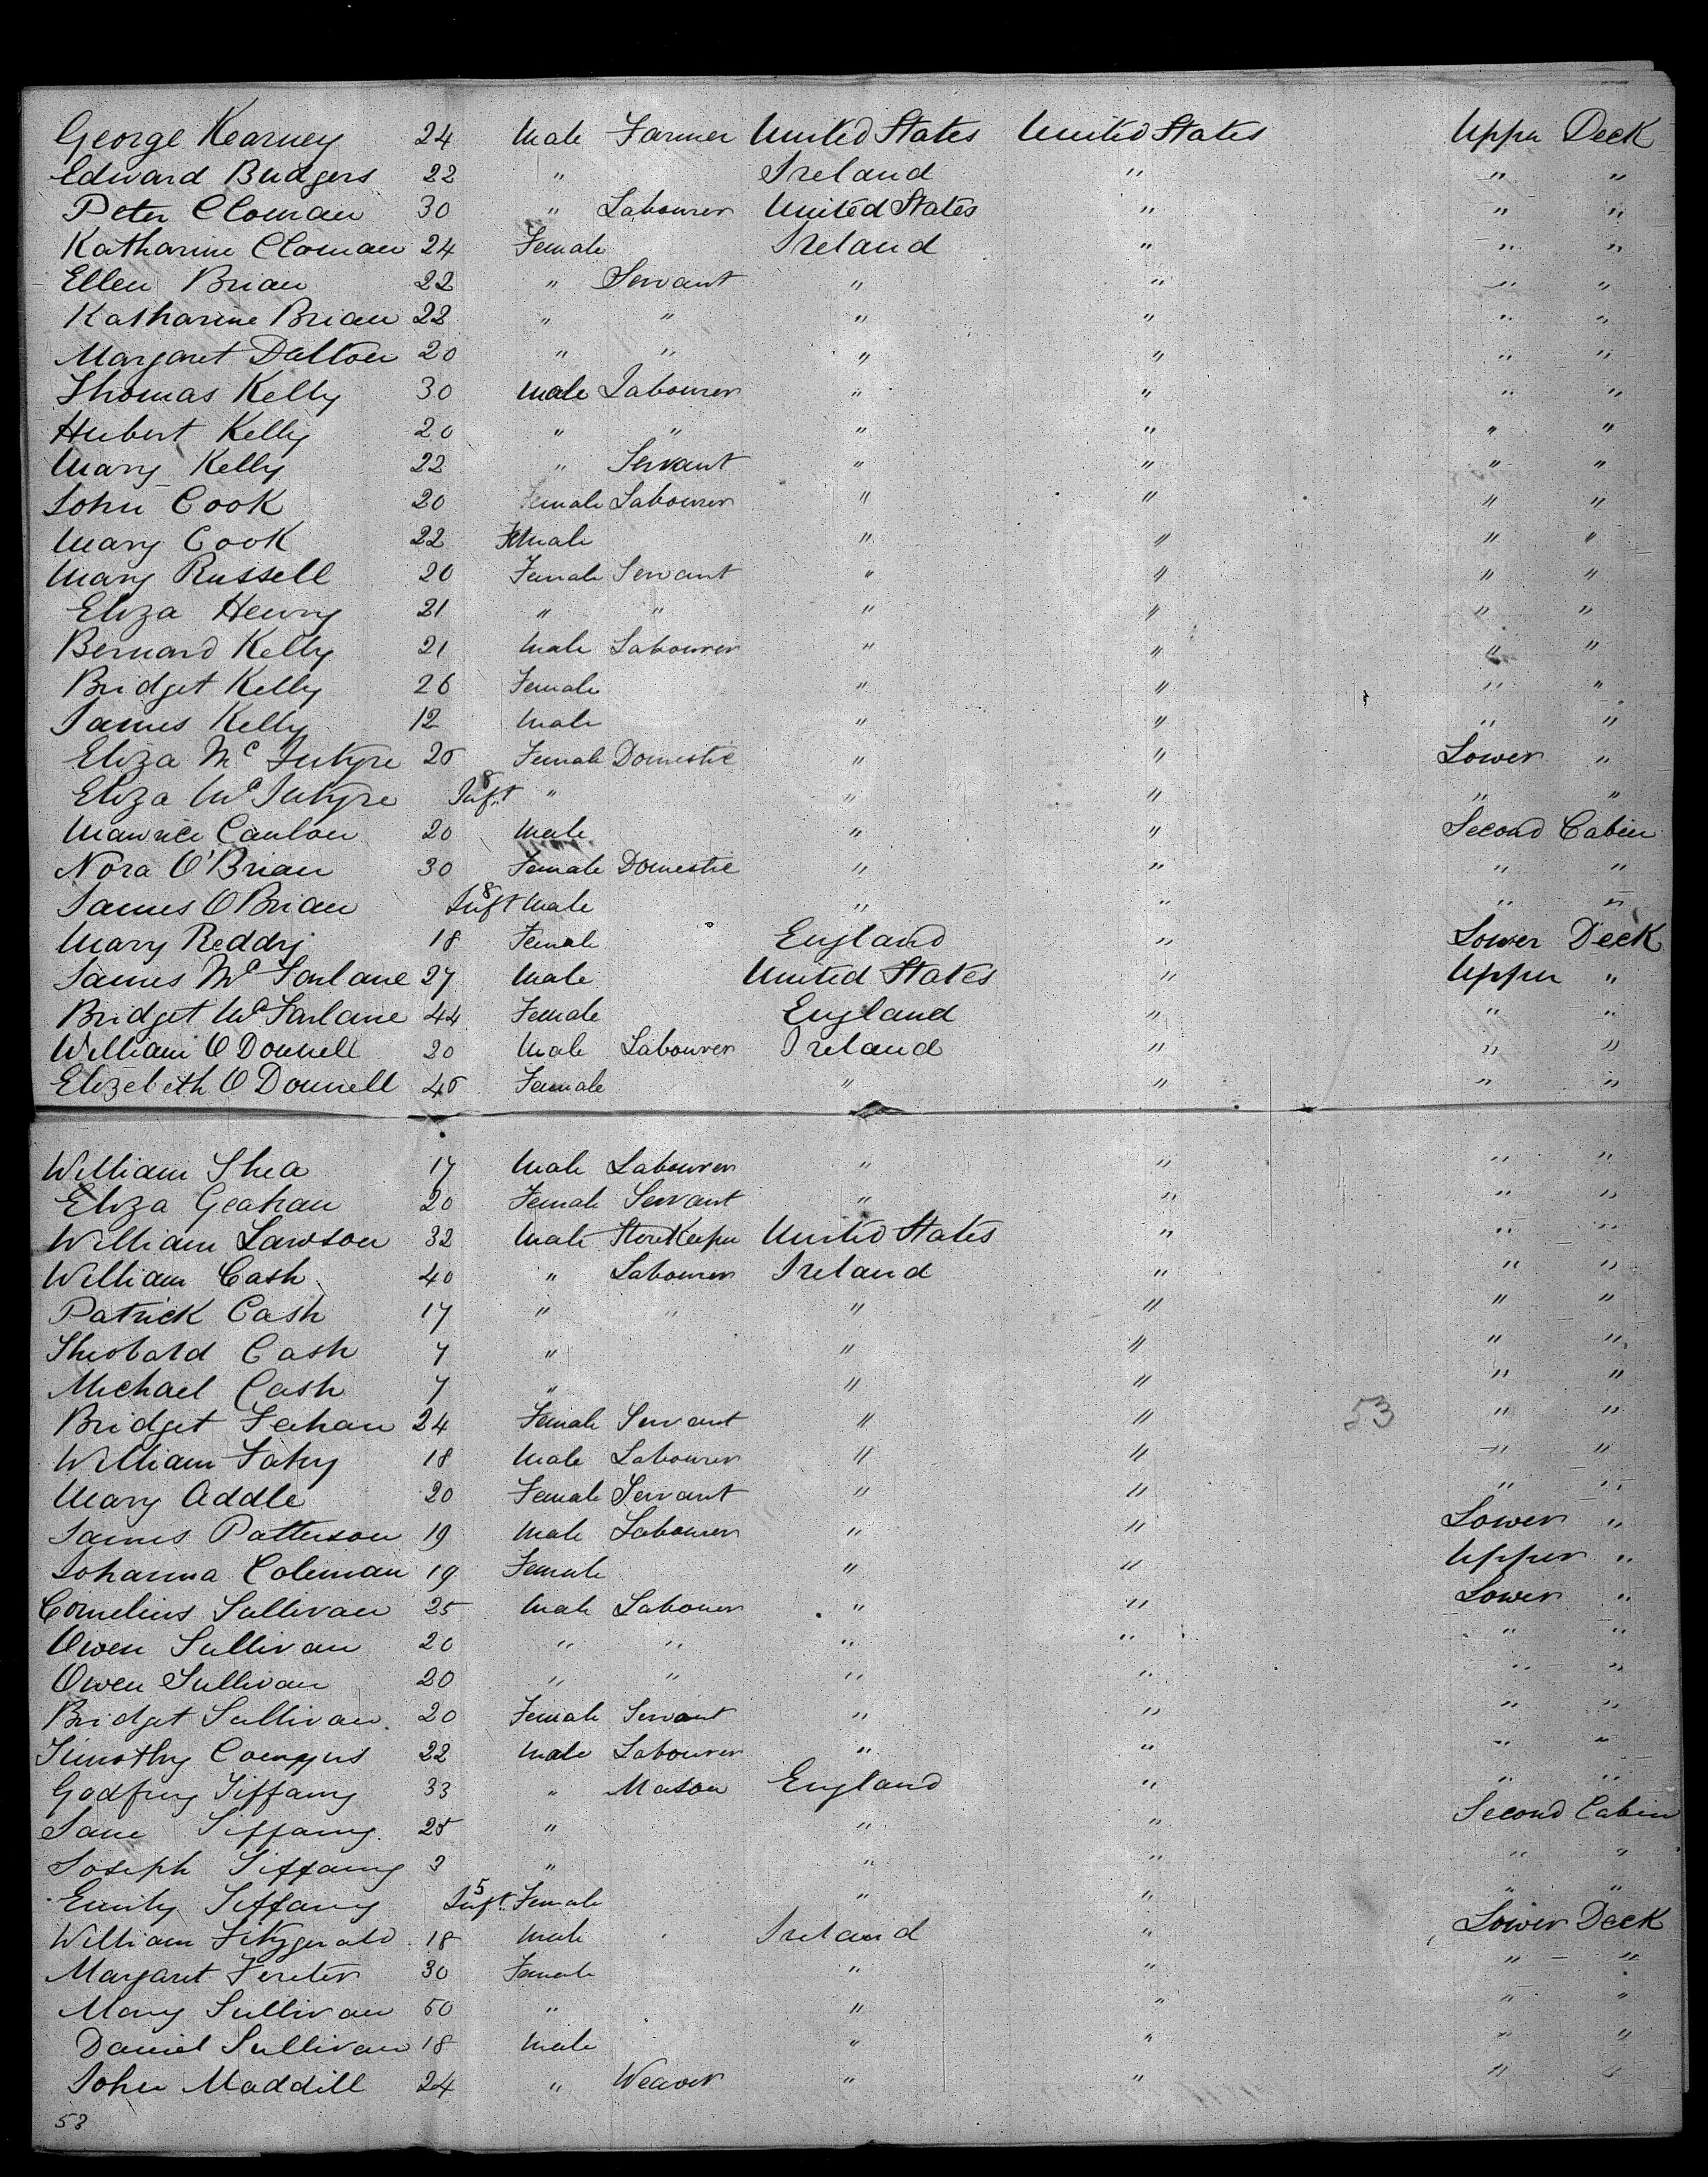 George Kearney 24 Male Farmer United States United States Upper Deck
Edward Budgers 22 " Ireland " " "
Peter Cloman 30 " Labourer United States " " "
Katharine Cloman 24 Female Ireland " " "
Ellen Brian 22 " Servant " " " "
Katharine Brian 22 " " " " " "
Margaret Dalton 20 " " " " " "
Thomas Kelly 30 Male Labourer " " " "
Hubert Kelly 20 " " " " " "
Mary Kelly 22 " Servant " " " "
John Cook 20 Female Labourer " " " "
Mary Cook 22 Female " " " "
Mary Russell 20 Female Servant " " " "
Eliza Henry 21 " " " " " "
Bernard Kelly 21 Male Labourer " " " "
Bridget Kelly 26 Female " " " "
James Kelly 12 Male " " " "
Eliza McIntyre 25 Female Domestic " " Lower "
Eliza McIntyre 8 Inft " " " " "
Maurice Canlon 20 Male " " Second Cabin
Nora O'Brian 30 Female Domestic " " " "
James O Brian 8 Inft Male " " " "
Mary Reddy 18 Female England " Lower Deck
James McFarlane 27 Male United States " Upper "
Bridget McFarlane 44 Female England " " "
William O Donnell 20 Male Labourer Ireland " " "
Elizebeth O Donnell 45 Female " " " "
William Shea 17 Male Labourer " " " "
Eliza Geahan 20 Female Servant " " " "
William Lawson 32 Male StoreKeeper United States " " "
William Cash 40 " Labourer Ireland " " "
Patrick Cash 17 " " " " " "
Theobald Cash 7 " " " " "
Michael Cash 7 " " " " "
Bridget Feehan 24 Female Servant " " 53 " "
William Fahy 18 Male Labourer " " " "
Mary Addle 20 Female Servant " " " "
James Patterson 19 Male Labourer " " Lower "
Johanna Coleman 19 Female " " Upper "
Cornelius Sullivan 25 Male Labouer " " Lower "
Owen Sullivan 20 " " " " " "
Owen Sullivan 20 " " " " " "
Bridget Sullivan 20 Female Servant " " " "
Timothy 22 Male Labourer " " " "
Godfrey Tiffany 33 " Mason England " " "
Jane Tiffany 25 " " " Second Cabin
Joseph Tiffany 3 " " " " "
Emily Tiffany 5 Inft Female " " " "
William Fitzgerald 18 Male Ireland " Lower Deck
Margaret 30 Female " " " "
Mary Sullivan 50 " " " " "
Daniel Sullivan 18 Male " " " "
John Maddill 24 " Weaver " " " "
53